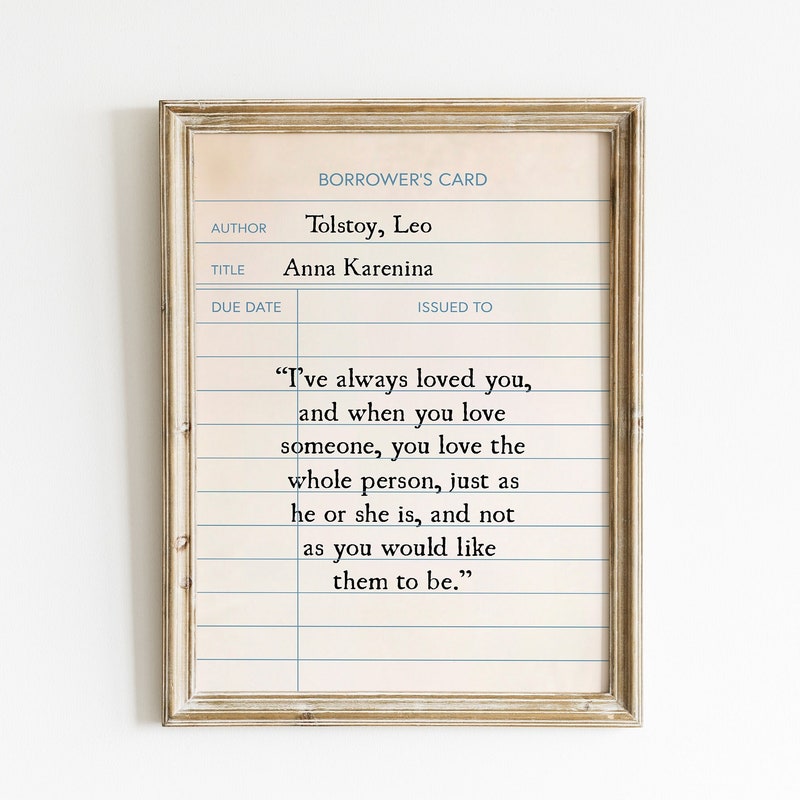 BORROWER'S CARD
AUTHOR Tolstoy, Leo
TITLE Anna Karenina
DUE DATE ISSUED TO
“I’ve always loved you,
and when you love
someone, you love the
whole person, just as
he or she is, and not
as you would like
them to be.”